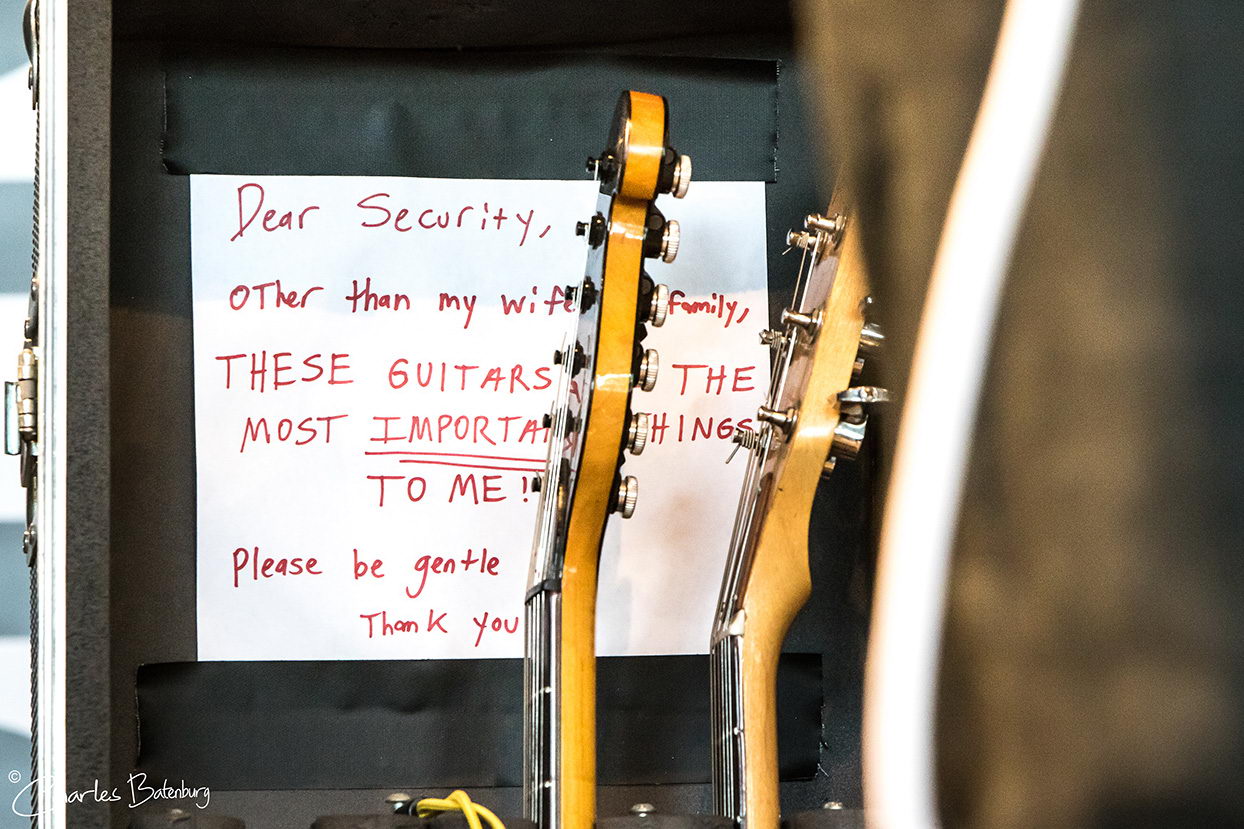 Dear Security,
OTher than my wife family,
THESE GUITARS THE
MOST IMPORTANT THINGS
TO ME!
Please be gentle
Thank you
© Charles Batenburg